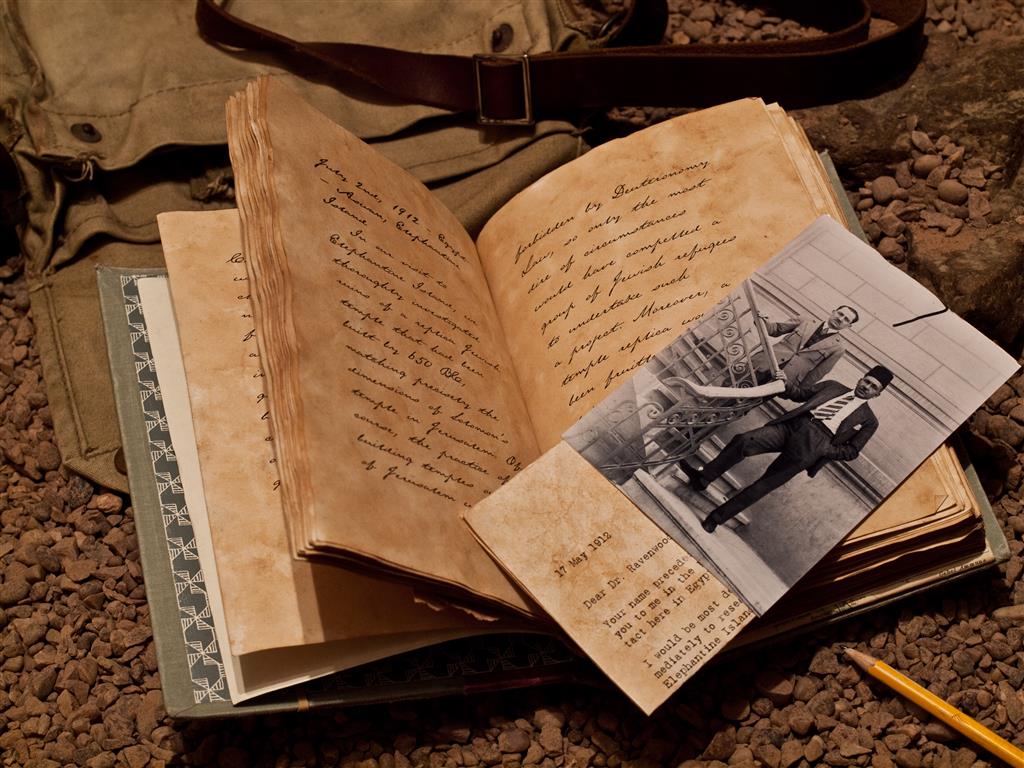 July 2nd, 1912
Aswan, Elephantine
Island
In an visit to
Elephantine Island in
thoroughly investigated
ruins of a replica Jewish
temple that have been
built by 650 B.C.
matching precisely the
dimensions of Solomon's
temple in Jerusalem. Of
course, the practice of
building temples
of Jerusalem
forbidden by Deuteronomy
Law, so only the most
dire of circumstances
would have compelled a
group of Jewish refugees
to undertake such
a project. Moreover, a
temple replica wo
been fruit
17 May 1912
Dear Dr. Ravenwoo
Your name precede
you to me in the
tact here in Egyp
I would be most d
mediately to rese
Elephantine Islan